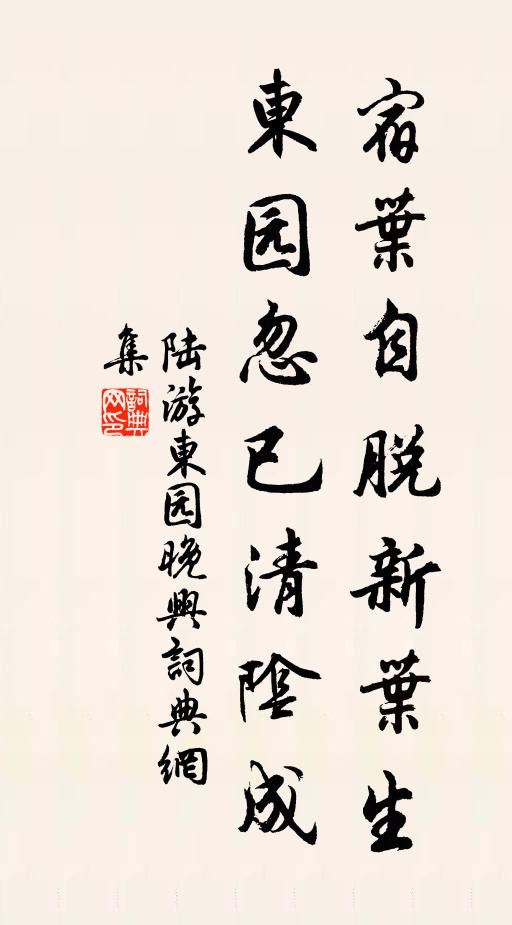 宿葉自脱新葉生
東园忽已清陰成
陆游東园晚興詞典網
集
詞典
网印